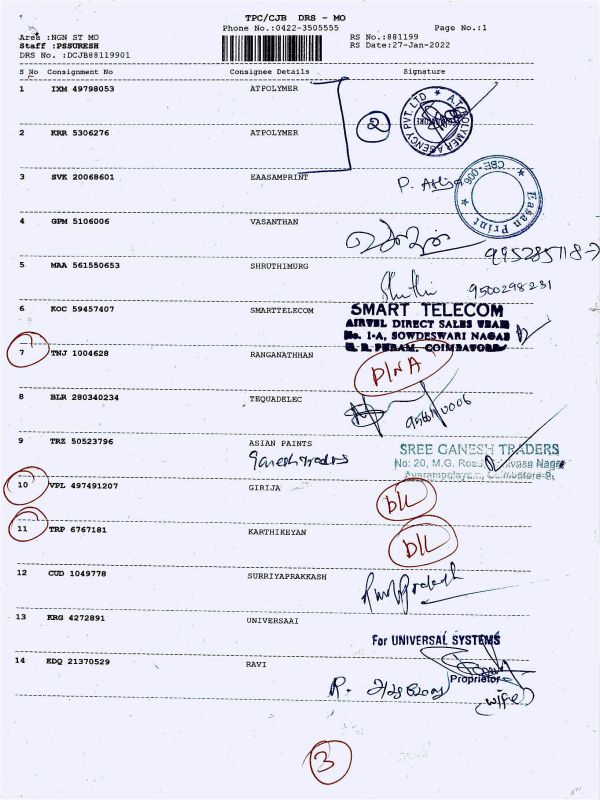 TPC/CJB DRS - MO
Phone No.:0422-3505555 Page No.:1
Area :NGN ST MO RS No.:881199
Staff :PSSURESH RS Date:27-Jan-2022
DRS No. :DCJB88119901
S No Consignment No Consignee Details Signature
1 IXM 49798053 ATPOLYMER
2
A.T.POLYMER AGENCY PVT. LTD
2 KRR 5306276 ATPOLYMER
3 SVK 20068601 EAASAMPRINT
Easan Print CBE-006
4 GPM 5106006 VASANTHAN
5 MAA 561550653 SHRUTHIMURG
Shruthi 9500298231
6 KOC 59457407 SMARTTELECOM
SMART TELECOM
AIRTEL DIRECT SALES TEAM
No. 1-A, SOWDESWARI NAGAR
COIMBATORE
7 TNJ 1004628 RANGANATHHAN
D/NA
8 BLR 280340234 TEQUADELEC
9 TRZ 50523796 ASIAN PAINTS
Ganesh Traders
SREE GANESH TRADERS
No: 20, M.G. Road, Nagar
10 VPL 497491207 GIRIJA
D/L
11 TRP 6767181 KARTHIKEYAN
D/L
12 CUD 1049778 SURRIYAPRAKKASH
13 KRG 4272891 UNIVERSAAI
For UNIVERSAL SYSTEMS
Proprietor
14 KDQ 21370529 RAVI
R.
(wife)
3